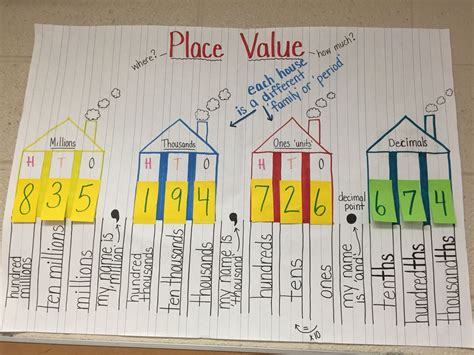 Place Value
where?
how much?
each house
is a different
'family' or 'period'
Millions
Thousands
Ones 'units'
Decimals
H T O
H T O
H T O
8 3 5
1 9 4
7 2 6
decimal
point
6 7 4
hundred
millions
ten millions
millions
my name is
'million'
hundred
thousands
ten thousands
thousands
my name is
'thousand'
hundreds
tens
ones
my name is
'and'
tenths
hundredths
thousandths
x10